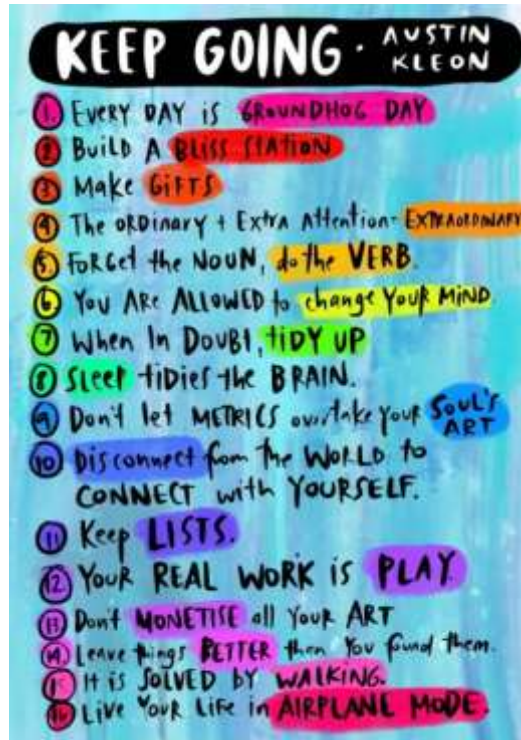 KEEP GOING · AUSTIN KLEON
1. EVERY DAY is GROUNDHOG DAY
2 BUILD A BLISS STATION
3 Make GIFTS
4 The ORDinary + Extra Attention = EXTRAORDINARY
5. FORGET the NOUN, do the VERB.
6 YOU ARE ALLOWED to change YOUR MIND
7 When In DOUBT, tiDY UP
8 Sleep tiDies the BRAIN.
9 Don't let METRICS overtake your SOUL'S ART
10 Disconnect from the WORLD to
CONNECT with YOURSELF.
11 Keep LISTS.
12 YOUR REAL WORK is PLAY
13 Don't MONETISE all YOUR ART
14. Leave things BETTER then You found them.
15 It is SOLVED BY WALKING.
16 Live YOUR LIFE in AIRPLANE MODE.